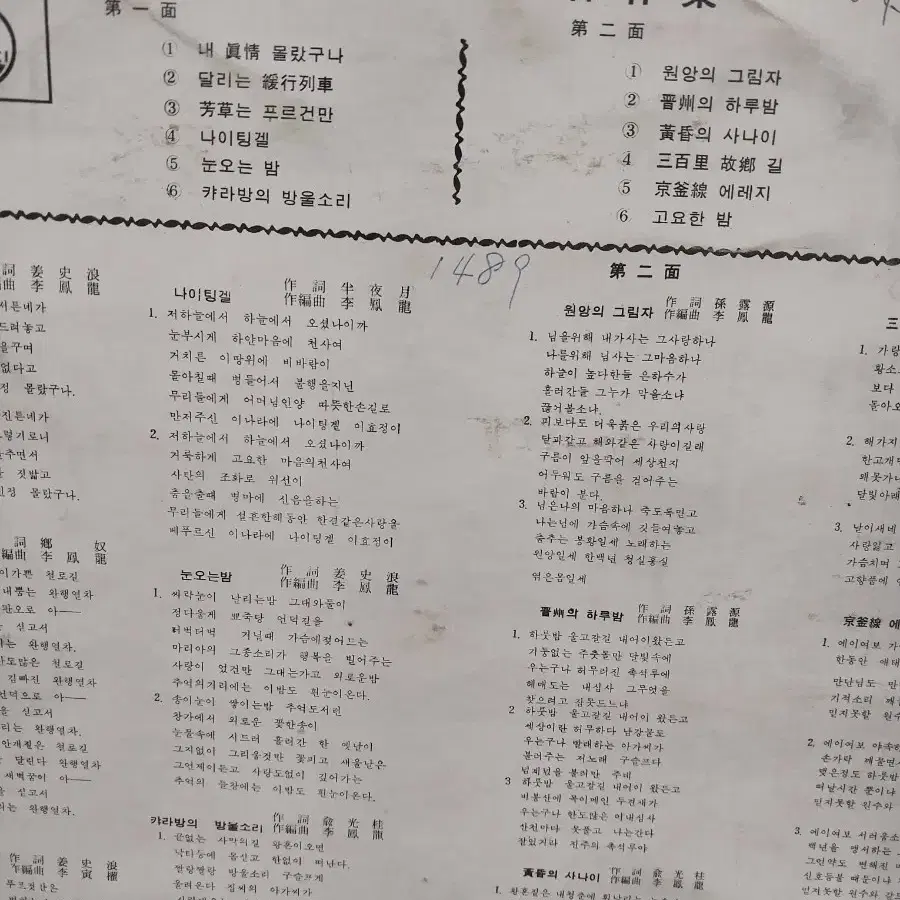 第一面
① 내 眞情 몰랐구나
② 달리는 緩行列車
③ 芳草는 푸르건만
④ 나이팅겔
⑤ 눈오는 밤
⑥ 캬라방의 방울소리
第二面
① 원앙의 그림자
② 晋州의 하루밤
③ 黃昏의 사나이
④ 三百里 故鄕 길
⑤ 京釜線 에레지
⑥ 고요한 밤
1489
詞 姜史浪
編曲 李鳳龍
서튼네가
드려놓고
을꾸며
없다고
정 몰랐구나.
진튼네가
렇기로니
추면서
짓밟고
인정 몰랐구나.
詞 鄕奴
編曲 李鳳龍
이가쁜 천로길
내뿜는 완행열차
완오로 아──
는 싣고서
는 완행열차.
한도많은 천로길
김빠진 완행열차
언덕으로 아──
을 싣고서
리는 완행열차.
안개젖은 천로길
달린다 완행열차
새벽꿈이 아──
을 싣고서
는 완행열차.
作詞 姜史浪
作編曲 李寅權
푸르젓만은
나이팅겔
作詞 半夜月
作編曲 李鳳龍
1. 저하늘에서 하늘에서 오셨나이까
눈부시게 하얀마음에 천사여
거치른 이땅위에 비바람이
몰아칠때 병들어서 불행을지닌
무리들에게 어머님인양 따뜻한손길로
만저주신 이나라에 나이팅겔 이효정이
2. 저하늘에서 하늘에서 오셨나이까
거룩하게 고요한 마음의천사여
사탄의 조화로 위선이
춤을출때 병마에 신음을하는
무리들에게 설흔한해동안 한결같은사랑을
베푸르신 이나라에 나이팅겔 이효정이
눈오는밤
作詞 姜史浪
作編曲 李鳳龍
1. 싸락눈이 나리는밤 그대와둘이
정다웁게 뾰죽당 언덕길을
터벅터벅 거닐때 가슴에젖어드는
마리아의 그종소리가 행복을 빌어주는
사랑이 었건만 그대는가고 외로운밤
추억의거리에는 이밤도 흰눈이온다.
2. 송이눈이 쌓이는밤 추억도서린
창가에서 외로운 꽃한송이
눈물속에 시드러 흘러간 한 옛날이
그지없이 그리울것만 꽃피고 새울날은
그언제이든고 사랑도없이 깊어가는
추억의 들창에는 이밤도 흰눈이온다.
캬라방의 방울소리
作詞 兪光桂
作編曲 李鳳龍
1. 끝없는 사막의길 황혼이오면
낙타등에 몸실고 한없이 떠난다.
짤랑짤랑 방울소리 구슬프게
울려온다 집씨의 아가씨가
第二面
원앙의 그림자
作詞 孫露源
作編曲 李鳳龍
1. 님을위해 내가사는 그사랑하나
나를위해 님사는 그마음하나
하늘이 높다한들 은하수가
흘러간들 그누가 막을소냐
끊어볼소냐.
2. 피보다도 더욱붉은 우리의사랑
달과같고 해와같은 사랑이길래
구름이 앞을막어 세상천지
어두워도 구름을 걷어주는
바람이 분다.
3. 님은나의 마음하나 축도록믿고
나는님에 가슴속에 깃들여놓고
춤추는 봉황일세 노래하는
원앙일세 한백년 청실홍실
엮은몸일세
晋州의 하루밤
作詞 孫露源
作編曲 李鳳龍
1. 하룻밤 울고갈길 내어이왔든고
기둥없는 주춧돌만 달빛속에
우는구나 허무러진 촉석루에
해매도는 내심사 그무엇을
찾으려고 길찾드느냐
2 하룻밤 울고갈길 내어이 왔든고
세상이란 허무하다 남강물도
우는구나 빨래하는 아가씨가
불러주는 저노래 구슬프다
님께님을 불러만 주네
3 하룻밤 울고갈길 내어이 왔든고
비봉산에 목이메인 두견새가
우는구나 한도많은 이내심사
산천마다 못풀고 나는간다
잘있거라 진주의 촉석루야
黃昏의 사나이
作詞 兪光桂
作編曲 李鳳龍
三
1. 가랑
황소
보다
돌아오
2. 해가지
한고개
왜못가나
달빛아래
3. 낯이새네
사랑잃고
가슴치며
고향품에
京釜線 에
1. 에이여보 가
한동안 애태
만난님도
기적소리
믿지못할 원수
2. 에이여보 야속하
손가락 깨물면서
맺은정도 하룻밤
떠날시간 뿐이냐
믿지못할 원수와
3. 에이여보 서러울소
백년을 맹서하는
그언약도 변해진
신호등불 때문이냐
믿지못할 원수와